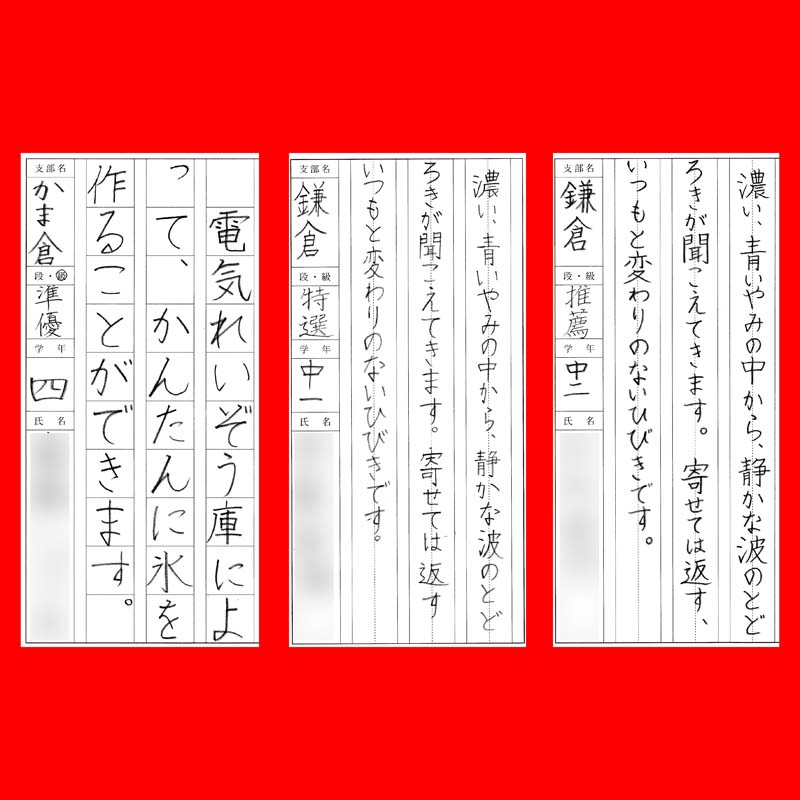 電気れいぞう庫によ
って、かんたんに氷を
作ることができます。
支部名
かま倉
段・級
準優
学年
四
氏名
濃い、青いやみの中から、静かな波のとど
ろきが聞こえてきます。寄せては返す
いつもと変わりのないひびきです。
支部名
鎌倉
段・級
特選
学年
中一
氏名
濃い、青いやみの中から、静かな波のとど
ろきが聞こえてきます。寄せては返す、
いつもと変わりのないひびきです。
支部名
鎌倉
段・級
推薦
学年
中二
氏名